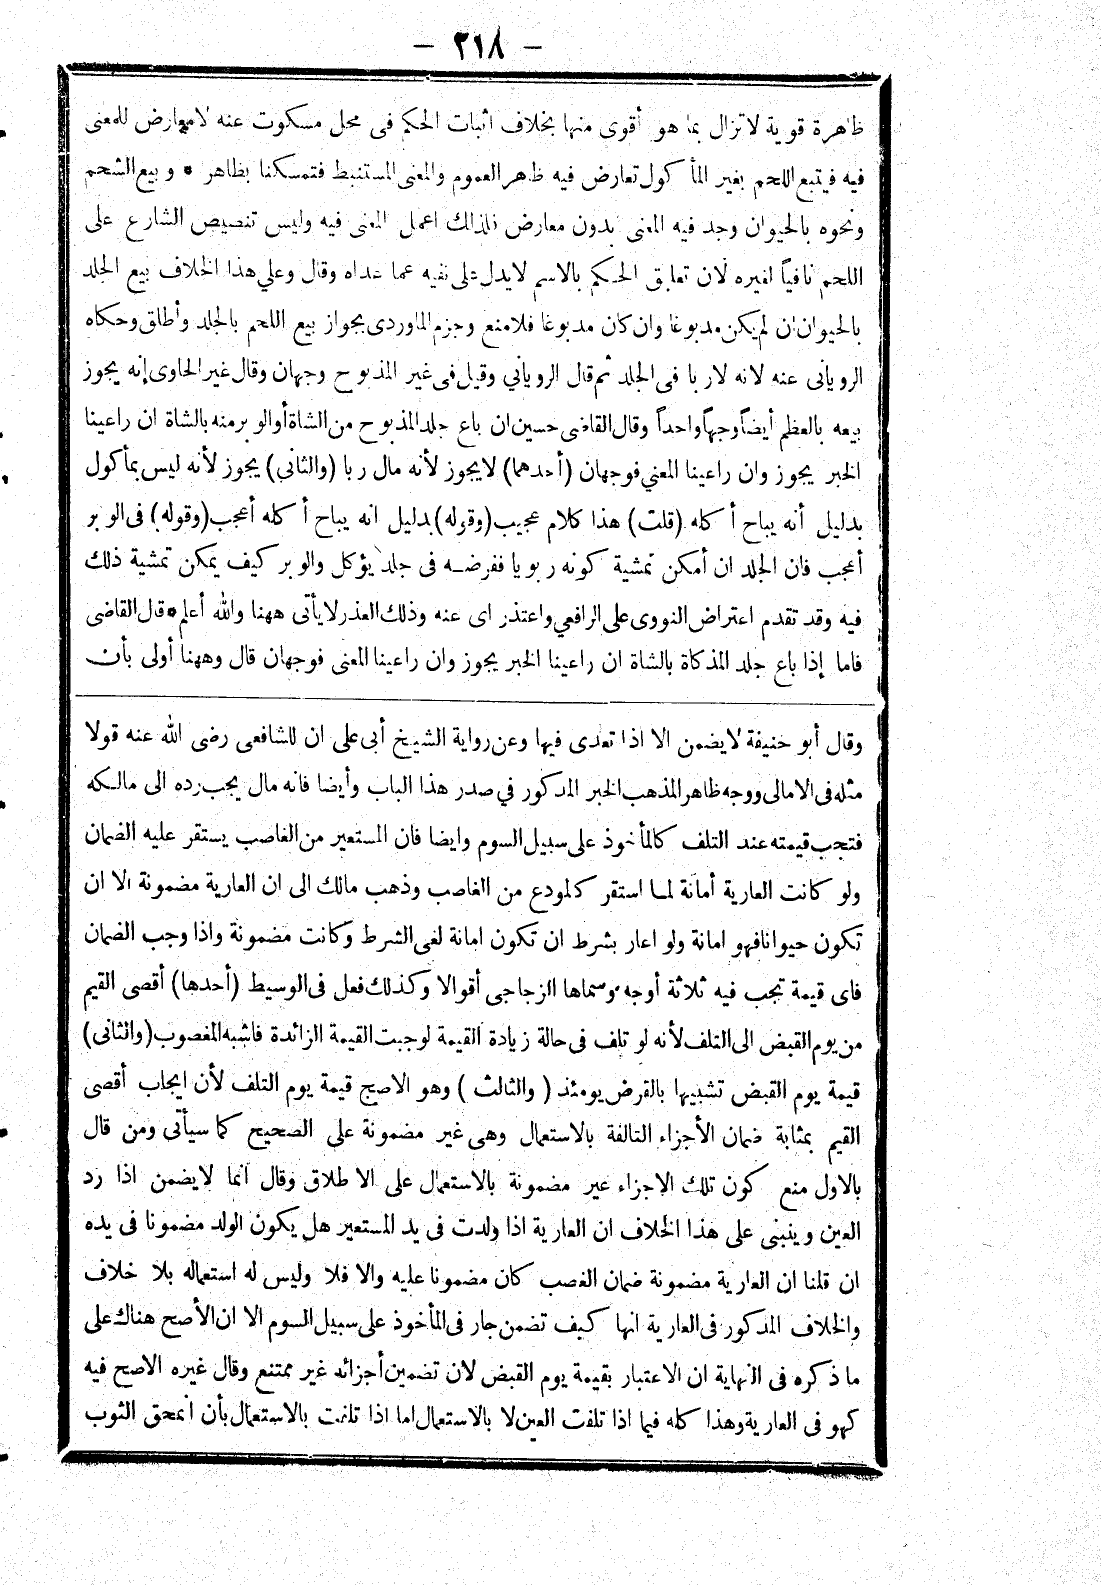 — ٢١٨ —
ظاهرة قوية لاتزال بما هو أقوى منها بخلاف اثبات الحكم فى محل مسكوت عنه لامعارض للمعنى
فيه فيتبع اللحم بغير المأكول تعارض فيه ظهر العموم والمعنى المستنبط فتمسكنا بظاهر * وبيع الشحم
ونحوه بالحيوان وجد فيه المعنى بدون معارض فلذلك اعمل المعنى فيه وليس تنصيص الشارع على
اللحم نافياً لغيره لان تعليق الحكم بالاسم لايدل على نفيه عما عداه وقال وعلي هذا الخلاف بيع الجلد
بالحيوان ان لم يكن مدبوغا وان كان مدبوغا فلامنع وجزم الماوردى بجواز بيع اللحم بالجلد وأطلق وحكاه
الرويانى عنه لانه لاربا فى الجلد ثم قال الروياني وقيل فى غير المذبوح وجهان وقال غير الحاوى إنه يجوز
بيعه بالعظم أيضاً وجهاً واحداً وقال القاضى حسين ان باع جلد المذبوح من الشاة أو الوبر منه بالشاة ان راعينا
الخبر يجوز وان راعينا المعني فوجهان (أحدهما) لايجوز لأنه مال ربا (والثانى) يجوز لأنه ليس بمأكول
بدليل أنه يباح أكله (قلت) هذا كلام عجيب (وقوله) بدليل انه يباح أكله أعجب (وقوله) فى الوبر
أعجب فان الجلد ان أمكن تمشية كونه ربويا ففرضه فى جلد يؤكل والوبر كيف يمكن تمشية ذلك
فيه وقد تقدم اعتراض النووى على الرافعي واعتذر اى عنه وذلك العذر لايأتى ههنا والله أعلم * قال القاضى
فاما إذا باع جلد المذكاة بالشاة ان راعينا الخبر يجوز وان راعينا المعنى فوجهان قال وههنا أولى بأن
وقال أبو حنيفة لايضمن الا اذا تعدى فيها وعن رواية الشيخ أبى على ان للشافعى رضى الله عنه قولا
مثله فى الامالى ووجه ظاهر المذهب الخبر المذكور في صدر هذا الباب وأيضا فانه مال يجب رده الى مالكه
فتجب قيمته عند التلف كالمأخوذ على سبيل السوم وايضا فان المستعير من الغاصب يستقر عليه الضمان
ولو كانت العارية أمانة لما استقر كالمودع من الغاصب وذهب مالك الى ان العارية مضمونة الا ان
تكون حيوانا فهو امانة ولو اعار بشرط ان تكون امانة لغى الشرط وكانت مضمونة واذا وجب الضمان
فاى قيمة تجب فيه ثلاثة أوجه وسماها الزجاجى أقوالا وكذلك فعل فى الوسيط (أحدها) أقصى القيم
من يوم القبض الى التلف لأنه لو تلف فى حالة زيادة القيمة لوجبت القيمة الزائدة فاشبه المغصوب (والثانى)
قيمة يوم القبض تشبيها بالقرض يومئذ (والثالث) وهو الاصح قيمة يوم التلف لأن ايجاب أقصى
القيم بمثابة ضمان الأجزاء التالفة بالاستعمال وهى غير مضمونة على الصحيح كما سيأتى ومن قال
بالاول منع كون تلك الاجزاء غير مضمونة بالاستعمال على الاطلاق وقال انما لايضمن اذا رد
العين وينبنى على هذا الخلاف ان العارية اذا ولدت فى يد المستعير هل يكون الولد مضمونا فى يده
ان قلنا ان العارية مضمونة ضمان الغصب كان مضمونا عليه والا فلا وليس له استعماله بلا خلاف
والخلاف المذكور فى العارية انها كيف تضمن جار فى المأخوذ على سبيل السوم الا ان الأصح هناك على
ما ذكره فى النهاية ان الاعتبار بقيمة يوم القبض لان تضمين أجزائه غير ممتنع وقال غيره الاصح فيه
كهو فى العارية وهذا كله فيما اذا تلفت العين لا بالاستعمال اما اذا تلفت بالاستعمال بأن انمحق الثوب